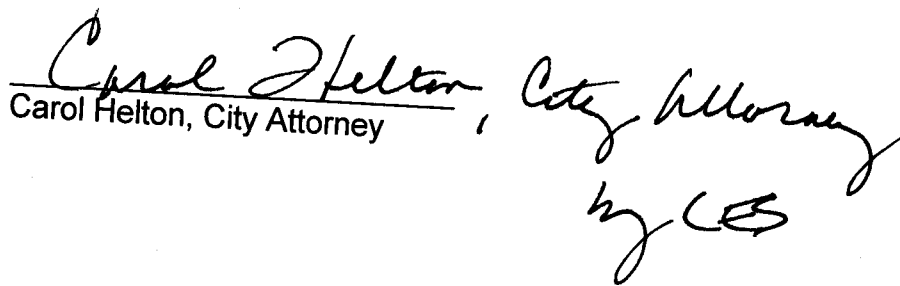 Carol Helton, City Attorney
Carol Helton, City Attorney
by CES